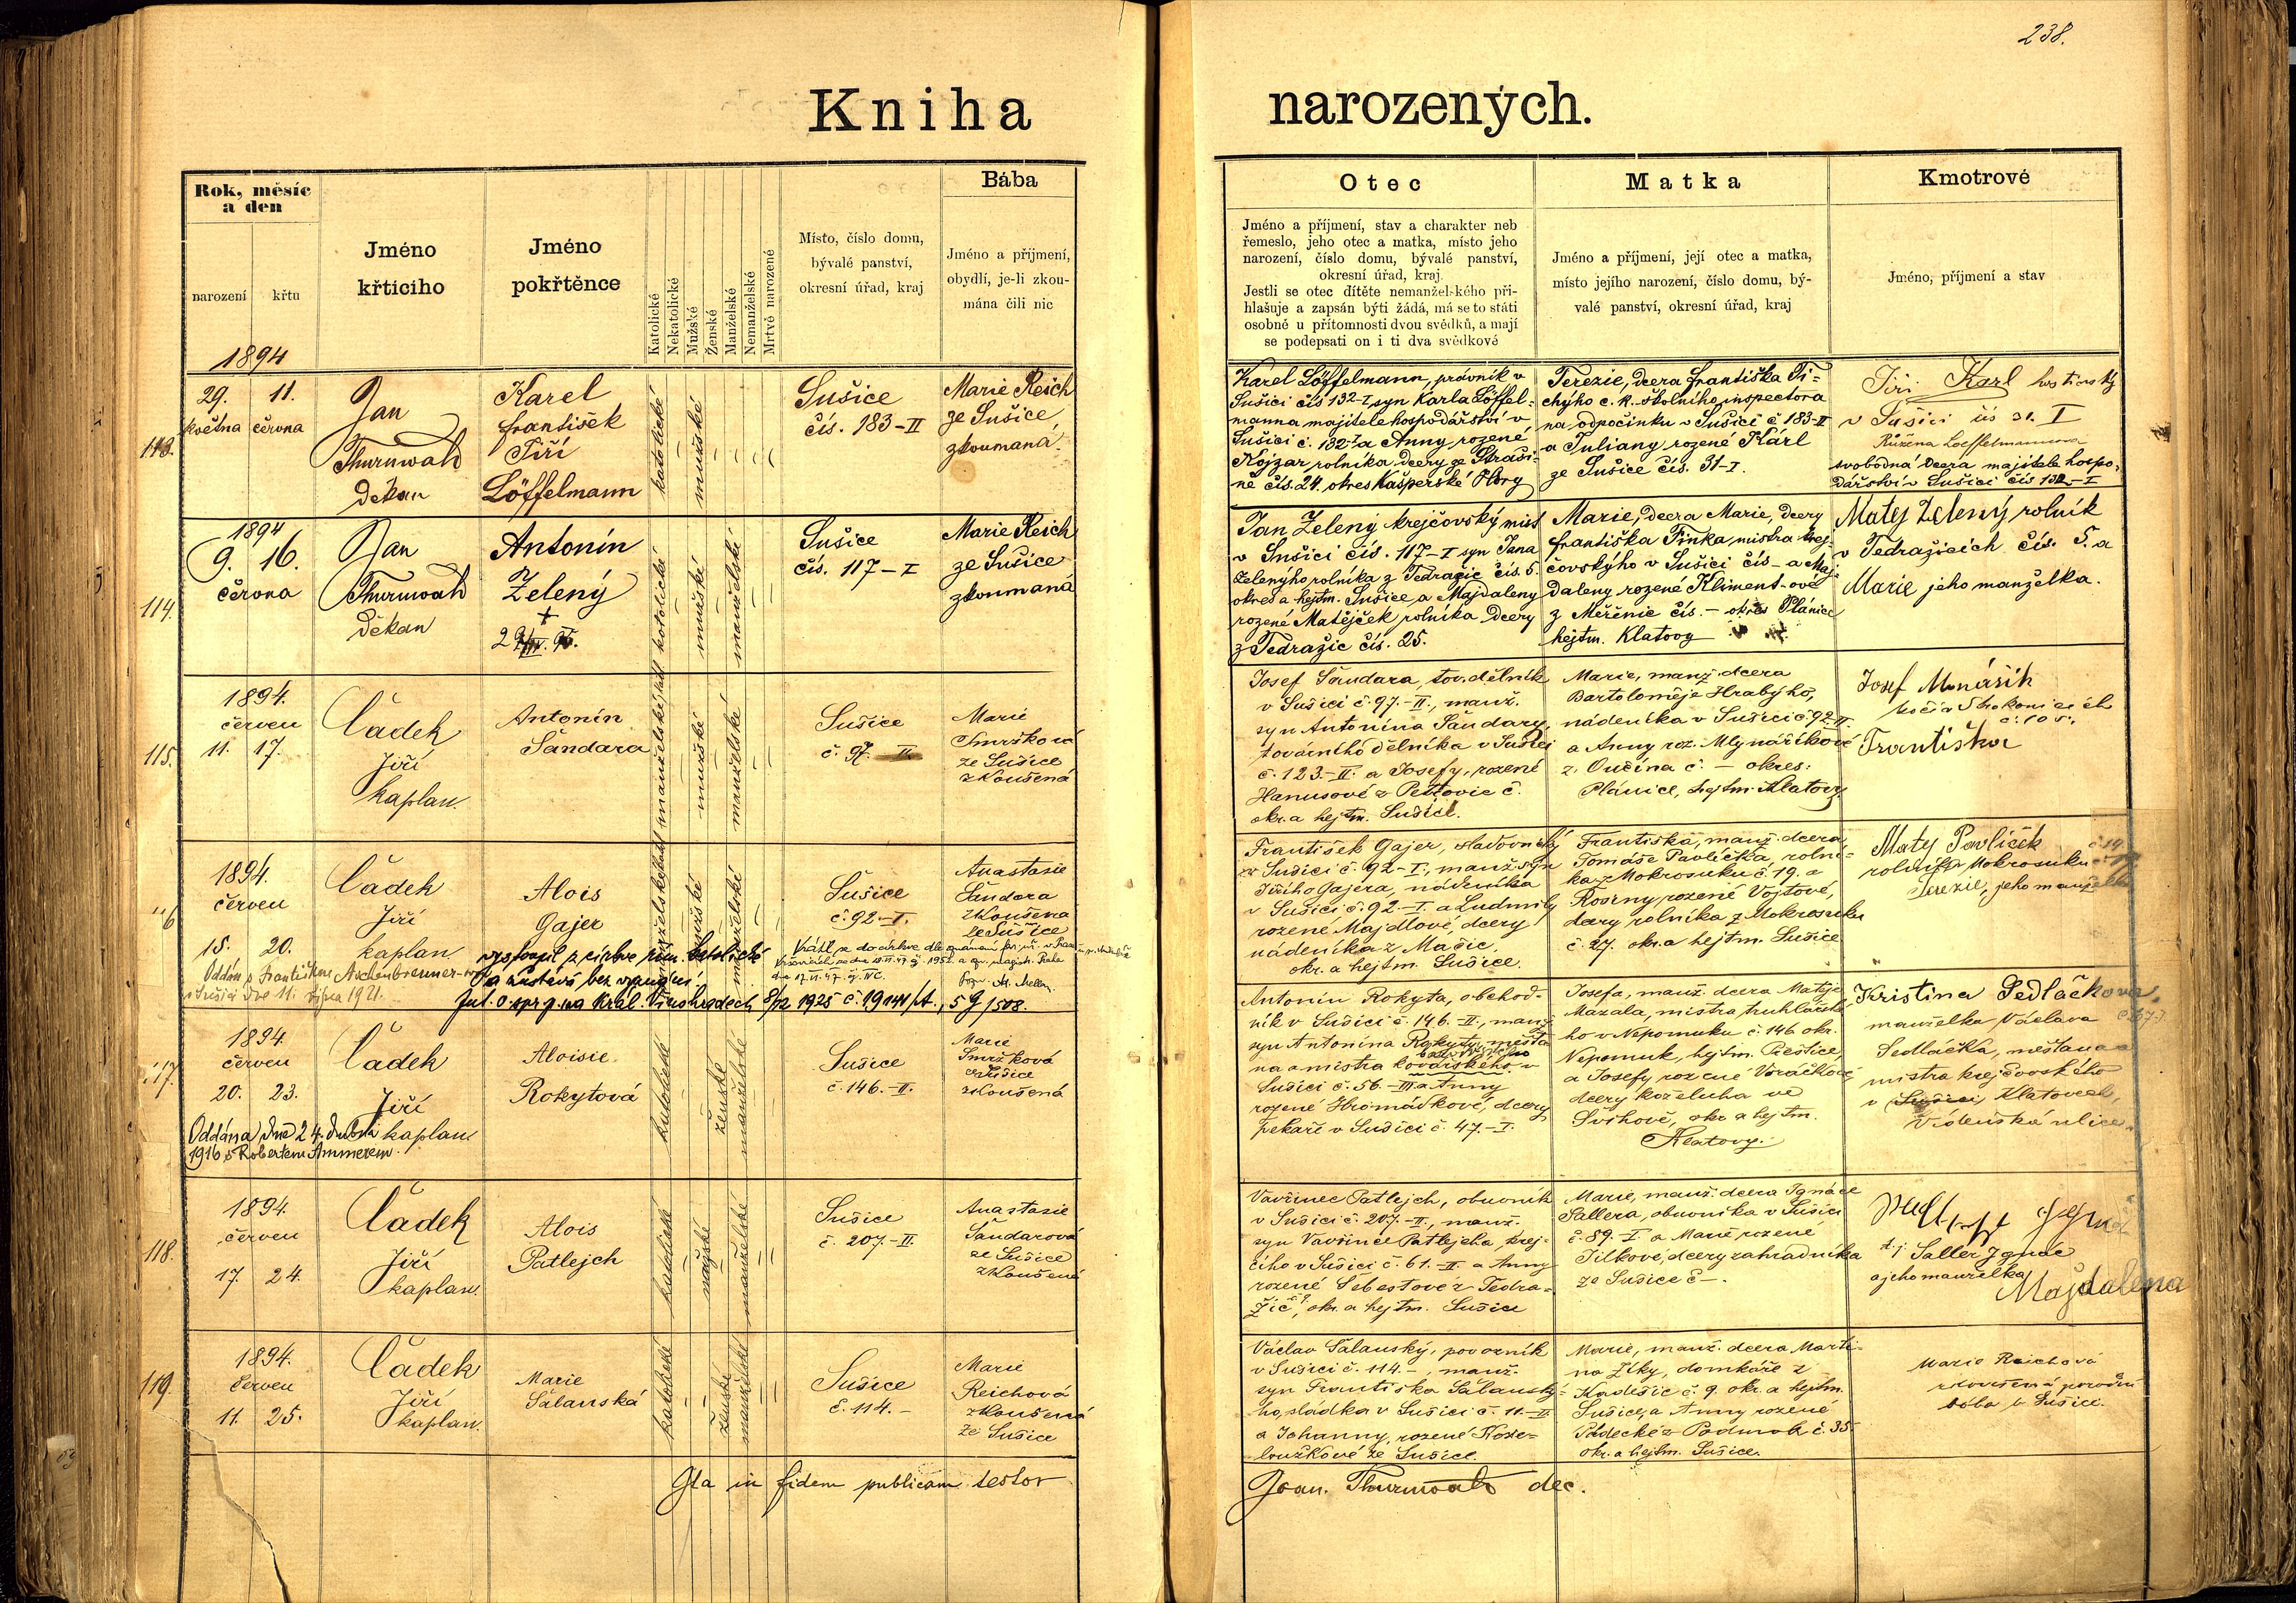 238.
Kniha narozených.
Rok, měsíc a den
narození
křtu
Jméno křtícího
Jméno pokřtěnce
Katolické
Nekatolické
Mužské
Ženské
Manželské
Nemanželské
Mrtvě narozené
Místo, číslo domu,
bývalé panství,
okresní úřad, kraj
Bába
Jméno a příjmení,
obydlí, je-li zkou-
mána čili nic
Otec
Jméno a příjmení, stav a charakter neb
řemeslo, jeho otec a matka, místo jeho
narození, číslo domu, bývalé panství,
okresní úřad, kraj.
Jestli se otec dítěte nemanželského při-
hlašuje a zapsán býti žádá, má se to státi
osobně u přítomnosti dvou svědků, a mají
se podepsati on i ti dva svědkové
Matka
Jméno a příjmení, její otec a matka,
místo jejího narození, číslo domu, bý-
valé panství, okresní úřad, kraj
Kmotrové
Jméno, příjmení a stav
113.
1894
29. 11.
května června
Jan
Thurnwald
Děkan
Karel
František
Jiří
Löffelmann
katolické
mužské
Sušice
čís. 183-II
Marie Reich
ze Sušice
zkoumaná
Karel Löffelmann, právník v
Sušici čís 132-I syn Karla Löffel-
manna majitele hospodářství v
Sušici č. 132-I a Anny rozené
rolníka dcery ze Straši-
ně čís. 24. okres Kašperské Hory
Terezie, dcera Františka Ti-
chýho c. k. školního inspectora
na odpočinku v Sušici č 183-II
a Juliany rozené Kárl
ze Sušice čís. 31-I.
Jiří Karl hostinský
v Sušici čís 31. I
Růžena Loeffelmannova
svobodná dcera majitele hospo-
dářství v Sušici čís 132-I
114.
1894
9. 16.
června
Jan
Thurnwald
Děkan
Antonín
Zelený
+
katolické
mužské
manželské
Sušice
čís. 117-I
Marie Reich
ze Sušice
zkoumaná
Jan Zelený krejčovský mist
v Sušici čís. 117-I syn Jana
Zelenýho rolníka z Tedražic čís. 5.
okres a hejtm. Sušice a Majdaleny
rozené Matějček rolníka dcery
z Tedražic čís. 25.
Marie, dcera Marie, dcery
Františka Finka mistra krej-
čovskýho v Sušici čís - a Maj-
daleny rozené Kliment-ové
z Měřenic čís. - okres Plánice
hejtm. Klatovy
Matej Zelený rolník
v Tedražicích čís. 5. a
Marie jeho manželka.
115.
1894.
červen
11. 17.
Čádek
Jiří
kaplan.
Antonín
Šandara
mužské
manželské
Sušice
č. 97. II.
Marie
Smržková
ze Sušice
zkoušená
Josef Šandara, tov. dělník
v Sušici č. 97.-II., manž.
syn Antonína Šandary,
továrního dělníka v Sušici
č. 123.-II. a Josefy, rozené
Hanusové z Petrovic č.
okr. a hejtm. Sušice.
Marie, manž. dcera
Bartoloměje Hrabýho,
nádeníka v Sušici č. 92.-II.
a Anny roz. Mlynaříkové
z Ouční­na č. - okres:
Plánice, hejtm. Klatovy.
Josef
č. 105.
Františka
116
1894.
červen
15. 20.
Čádek
Jiří
kaplan
Alois
Gajer
mužské
manželské
Sušice
č. 92.-I.
Anastasie
Šandara
zkoušena
ze Sušice
vystoupil z církve řím. katolické
a zůstává bez vyznání.
Oddán s Františkou Aschenbrenner-
v Sušici dne 11. října 1921.
František Gajer, sladovnický
v Sušici č. 92-I., manž. syn
Jiřího Gajera, nádeníka
v Sušici č. 92.-I. a Ludmily
rozené Majdlové, dcery
nádeníka z Mačic,
okr. a hejtm. Sušice.
Františka, manž. dcera
Tomáše Pavlíčka, rolní-
ka z Mokrosuku č. 19. a
Rosiny rozené Vojtové,
dcery rolníka z Mokrosuku
č. 27. okr. a hejtm. Sušice
Matej Pavlíček
rolník z Mokrosuku č 19
Terezie, jeho manželka
117.
1894.
červen
20. 23.
Čádek
Jiří
kaplan.
Oddána dne 24. dubna
1916 s Robertem Ammerem.
Aloisie
Rokytová
katolické
ženské
manželské
Sušice
č. 146.-II.
Marie
Smržková
ze Sušice
zkoušená
Antonín Rokyta, obchod-
ník v Sušici č. 146.-II., manž.
syn Antonína Rokyty, měšťa-
na a mistra kovářského v
Sušici č. 56.-III a Anny
rozené Hromádkové, dcery
pekaře v Sušici č. 47.-I.
Josefa, manž. dcera Matěje
Mazala, mistra truhlářské-
ho v Nepomuku č. 146 okr.
Nepomuk, hejtm. Přeštice,
a Josefy rozené Voráčkové
dcery koželuha ve
Švihově, okr. a hejtm.
Klatovy.
Kristina Sedláčkova,
manželka Václava
Sedláčka, měšťana a
mistra krejčovského
v Sušici Klatovech,
Vídeňská ulice.
118.
1894.
červen
17. 24.
Čádek
Jiří
kaplan.
Alois
Patlejch
katolické
mužské
manželské
Sušice
č. 207.-II.
Anastasie
Šandarová
ze Sušice
zkoušená
Vavřinec Patlejch, obuvník
v Sušici č. 207.-II., manž.
syn Vavřince Patlejcha, krej-
čího v Sušici č. 61.-II. a Anny
rozené Šebestové z Tedra-
žic, okr. a hejtm. Sušice
Marie, manž. dcera Ignáce
Sallera, obuvníka v Sušici
č. 89.-I. a Marie rozené
Jílkové, dcery zahradníka
ze Sušice č -.
t.j. Saller Ignác
a jeho manželka
Majdalena
119.
1894.
červen
11. 25.
Čádek
Jiří
kaplan.
Marie
Šalanská
katolické
ženské
manželské
Sušice
č. 114.-
Marie
Reichová
zkoušená
ze Sušice
Václav Šalanský, povozník
v Sušici č. 114.-, manž.
syn Františka Šalanský-
ho, sládka v Sušici č. 11.-II.
a Johanny, rozené Kose-
loužkové ze Sušice.
Marie, manž. dcera Marti-
na Zíky, domkáře z
Kadešic č. 9. okr. a hejtm.
Sušice, a Anny rozené
Pádecké z Podmok č. 35.
okr. a hejtm. Sušice.
Marie Reichová
zkoušená porodní
bába v Sušici.
Ita in fidem publicam testor
Joan. Thurnwald dec.